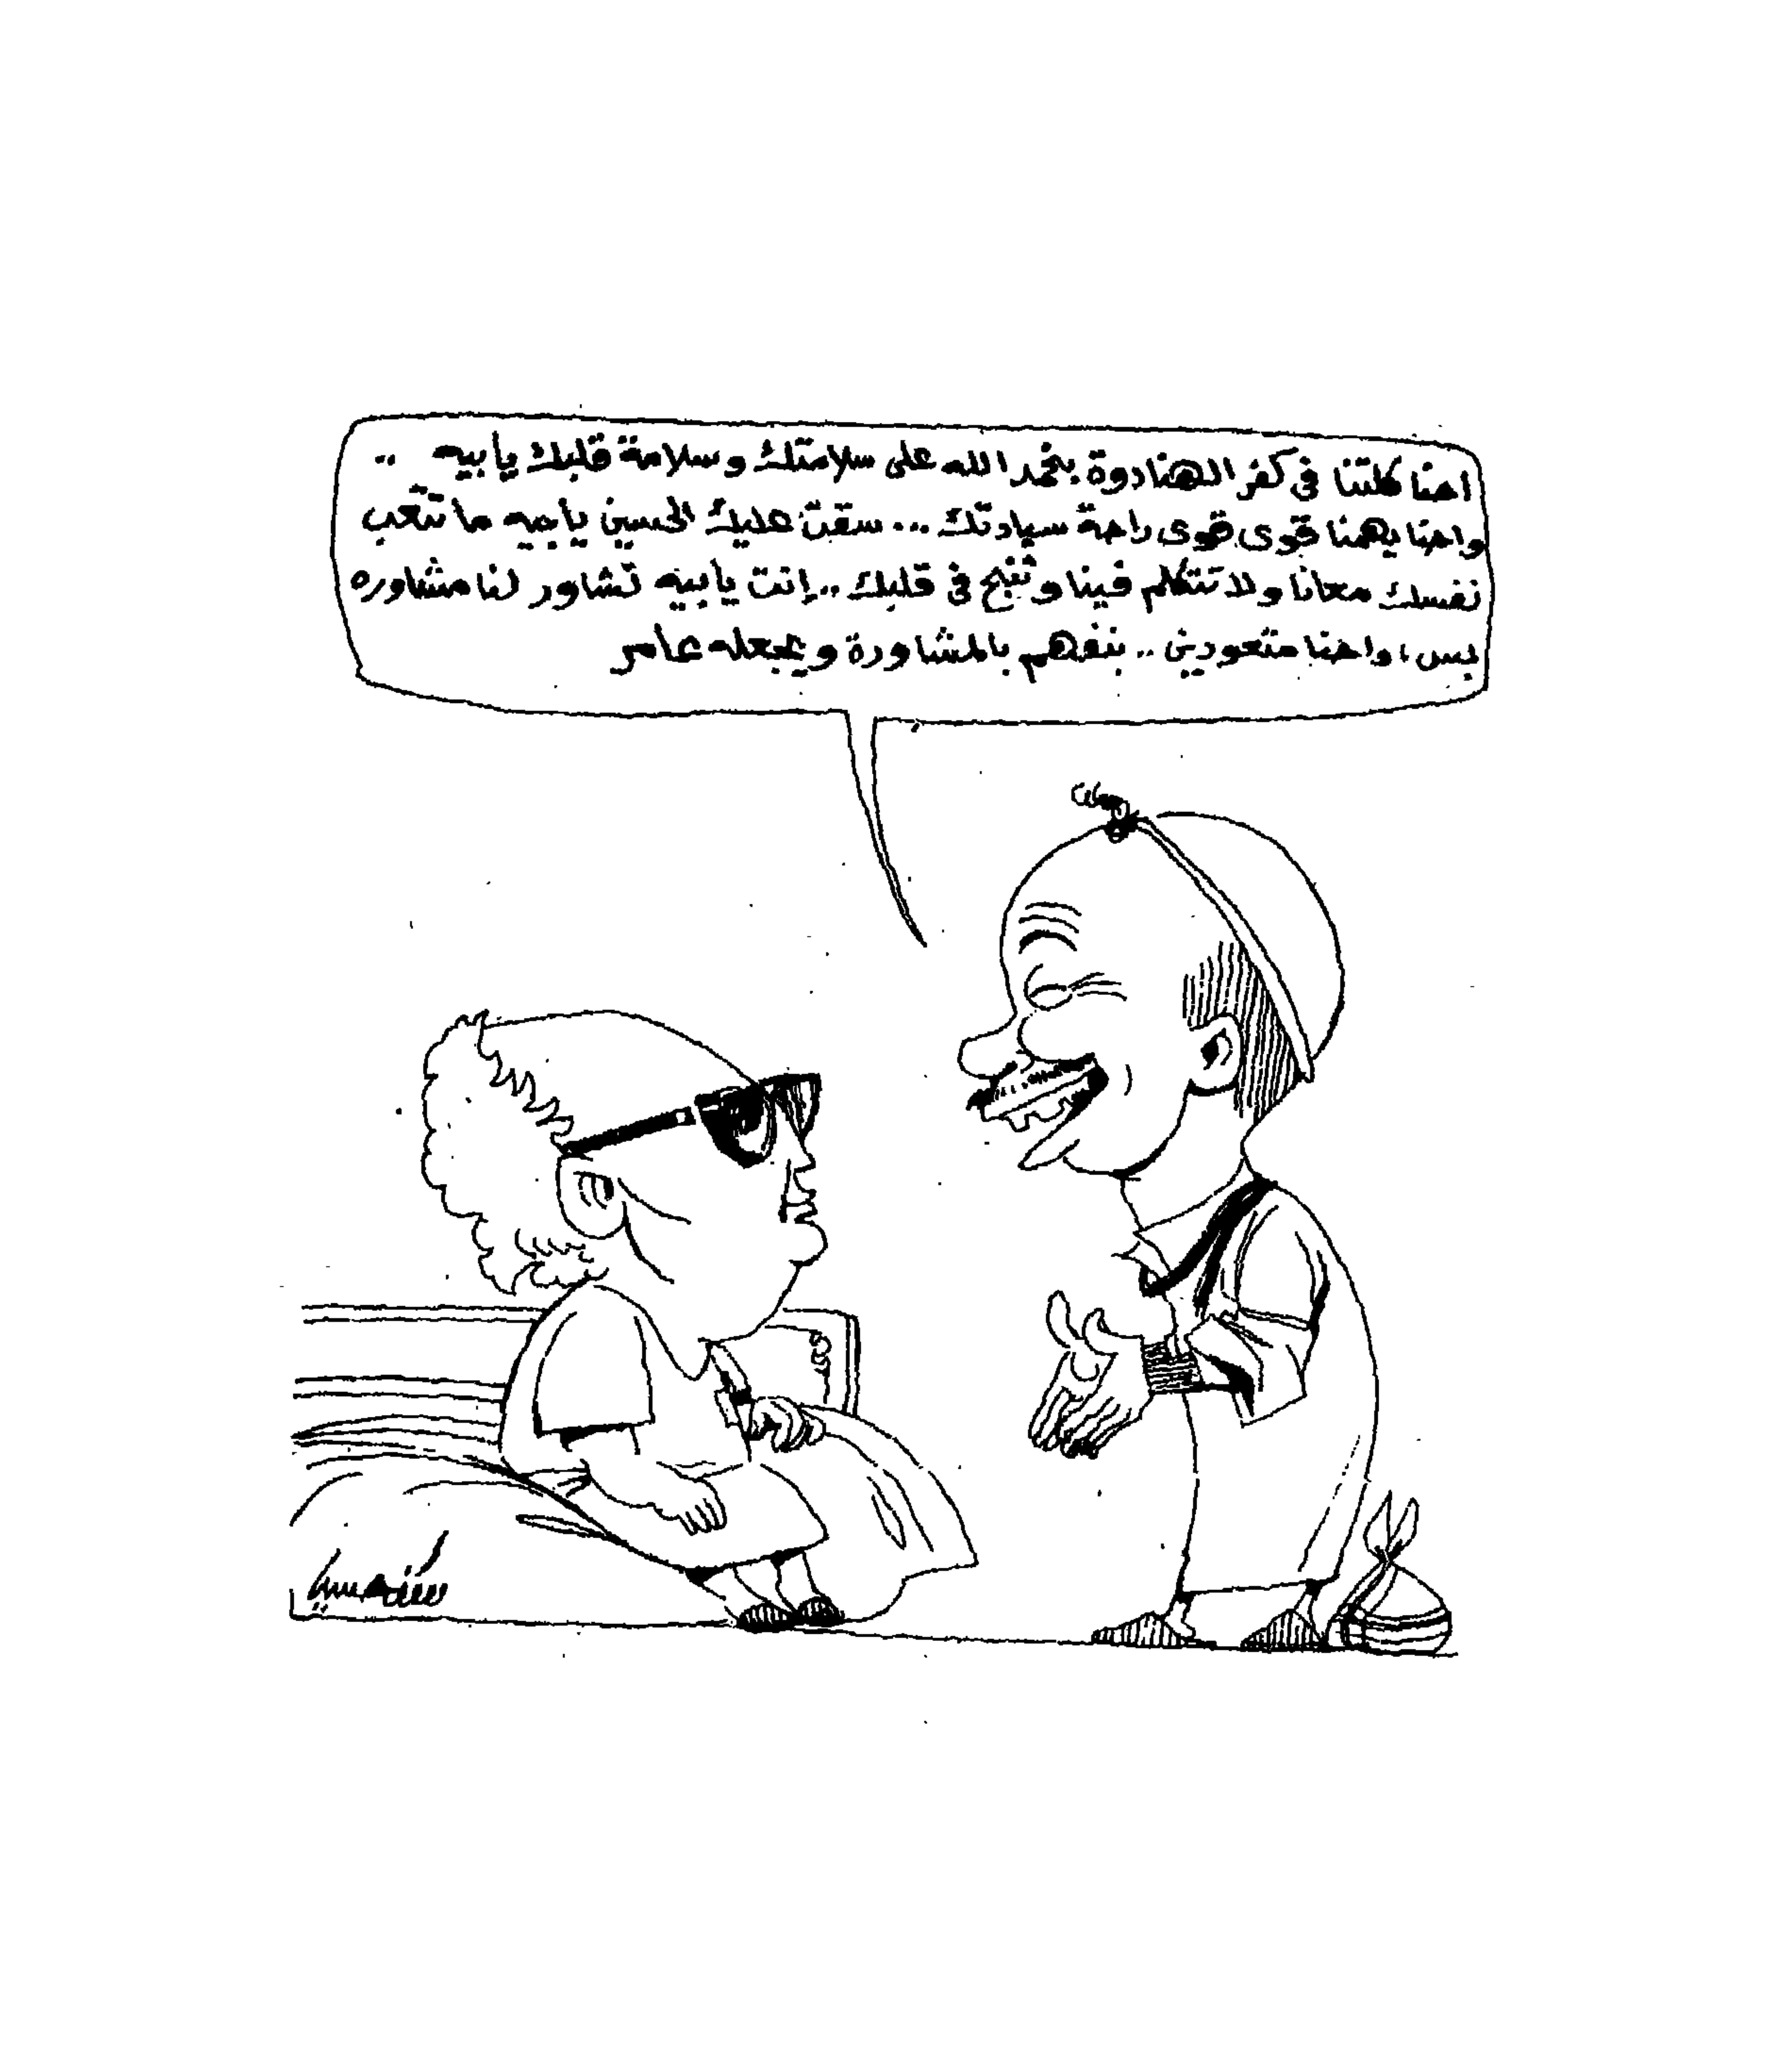 احنا كلتنا فى كفر الهنادوة بنحمد الله على سلامتك وسلامة قلبك يا بيه ..
واحنا يهمنا قوى قوى راحة سيادتك ... سقت عليك الحسين يا بيه ما تتعب
نفسك معانا ولا تتكلم فينا و فى قلبك .. إنت يا بيه تشاور لنا مشاوره
بس، واحنا متعودين .. بنفهم بالمشاورة و عامر